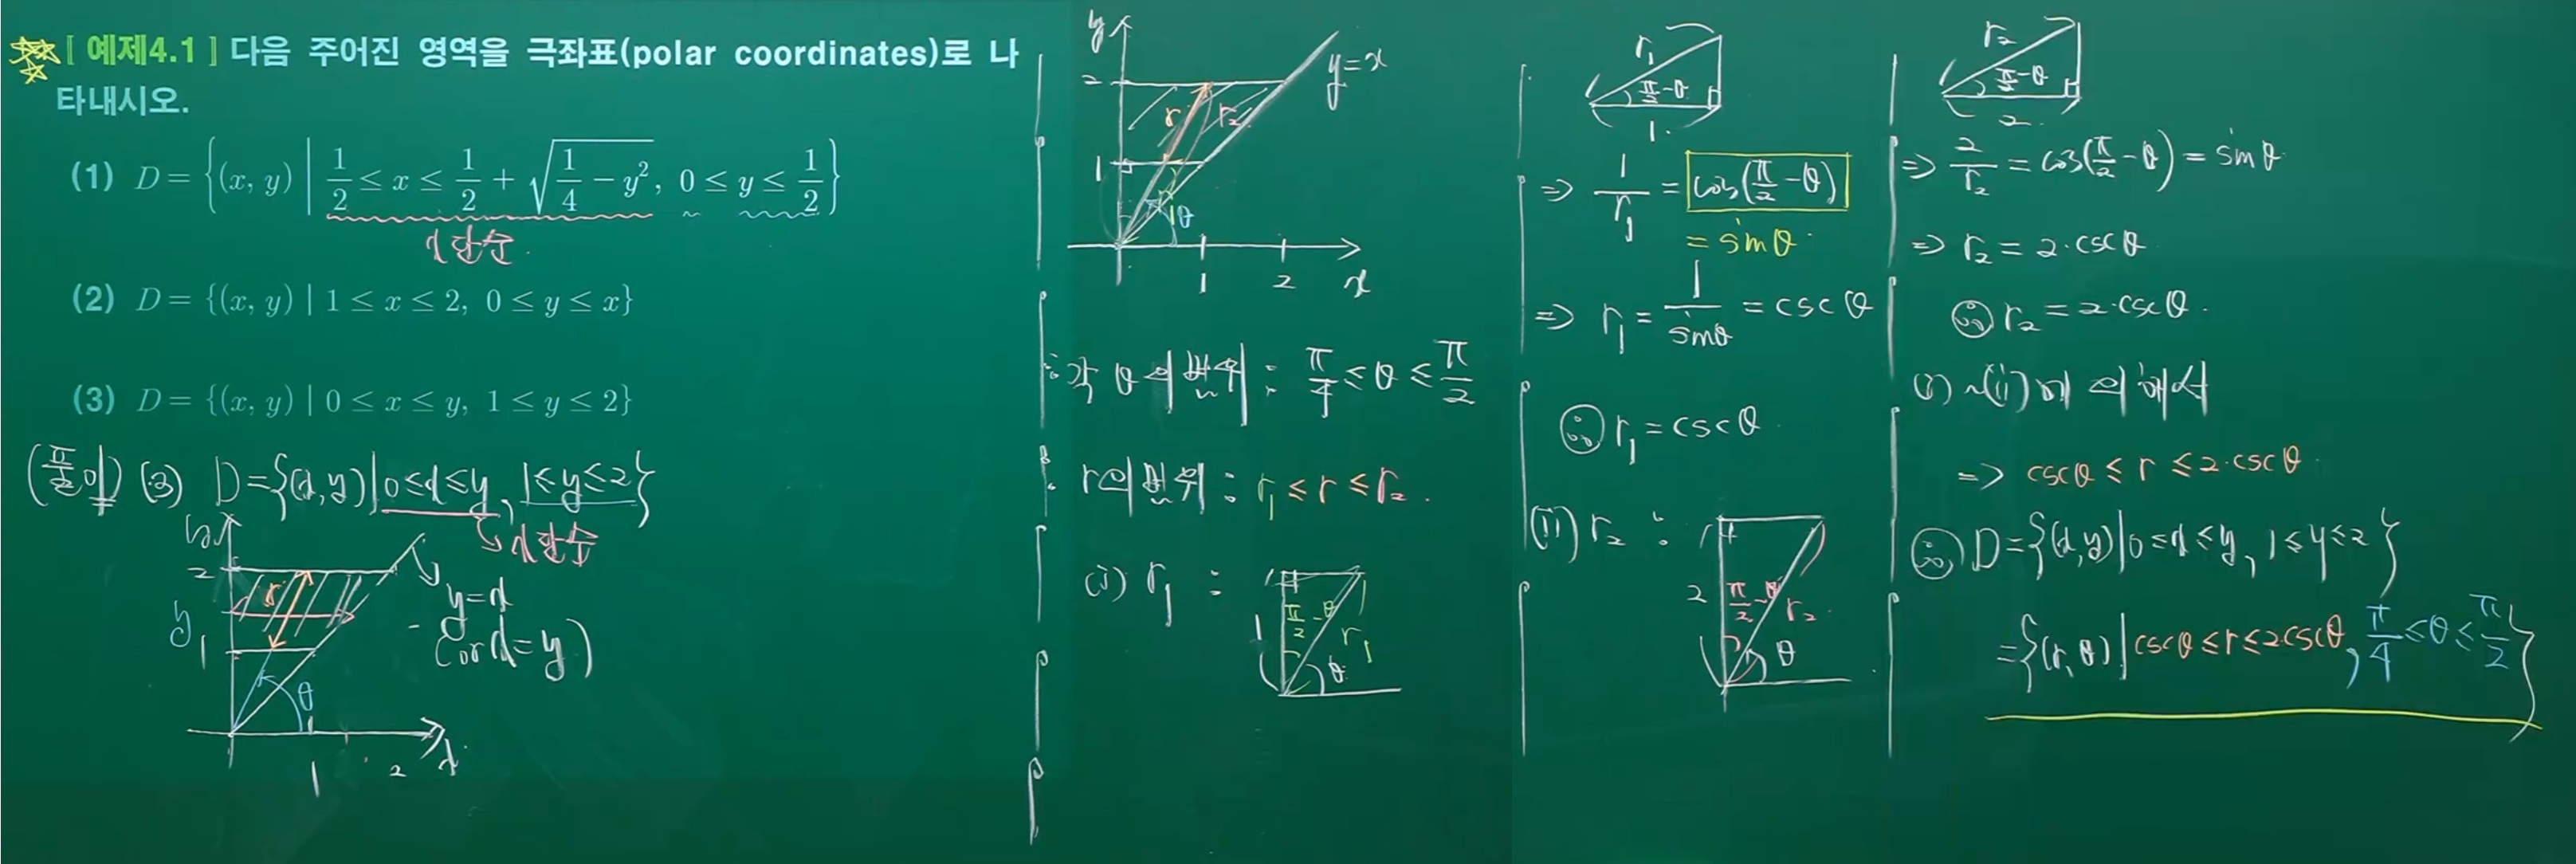 [ 예제4.1 ] 다음 주어진 영역을 극좌표(polar coordinates)로 나
타내시오.
(1) D = {(x, y) | 1/2 ≤ x ≤ 1/2 + √(1/4 − y²), 0 ≤ y ≤ 1/2}
x 함수
(2) D = {(x, y) | 1 ≤ x ≤ 2, 0 ≤ y ≤ x}
(3) D = {(x, y) | 0 ≤ x ≤ y, 1 ≤ y ≤ 2}
(풀이) (3) D = {(x, y) | 0 ≤ x ≤ y, 1 ≤ y ≤ 2}
x 함수
y
2
r
y
1
θ
1
2
x
y = x
(or x = y)
y
2
r
r₂
1
θ
1
2
x
y = x
∴ 각 θ의 범위 : π/4 ≤ θ ≤ π/2
r의 범위 : r₁ ≤ r ≤ r₂.
(i) r₁ :
1
π/2 − θ
r₁
θ
r₁
π/2 − θ
1
⇒ 1/r₁ = cos(π/2 − θ)
= sin θ
⇒ r₁ = 1/sin θ = csc θ
∴ r₁ = csc θ
(ii) r₂ :
2
π/2 − θ
r₂
θ
r₂
π/2 − θ
2
⇒ 2/r₂ = cos(π/2 − θ) = sin θ
⇒ r₂ = 2·csc θ
∴ r₂ = 2·csc θ.
(i) ~ (ii)에 의해서
⇒ csc θ ≤ r ≤ 2·csc θ
∴ D = {(x, y) | 0 ≤ x ≤ y, 1 ≤ y ≤ 2}
= {(r, θ) | csc θ ≤ r ≤ 2csc θ, π/4 ≤ θ ≤ π/2}